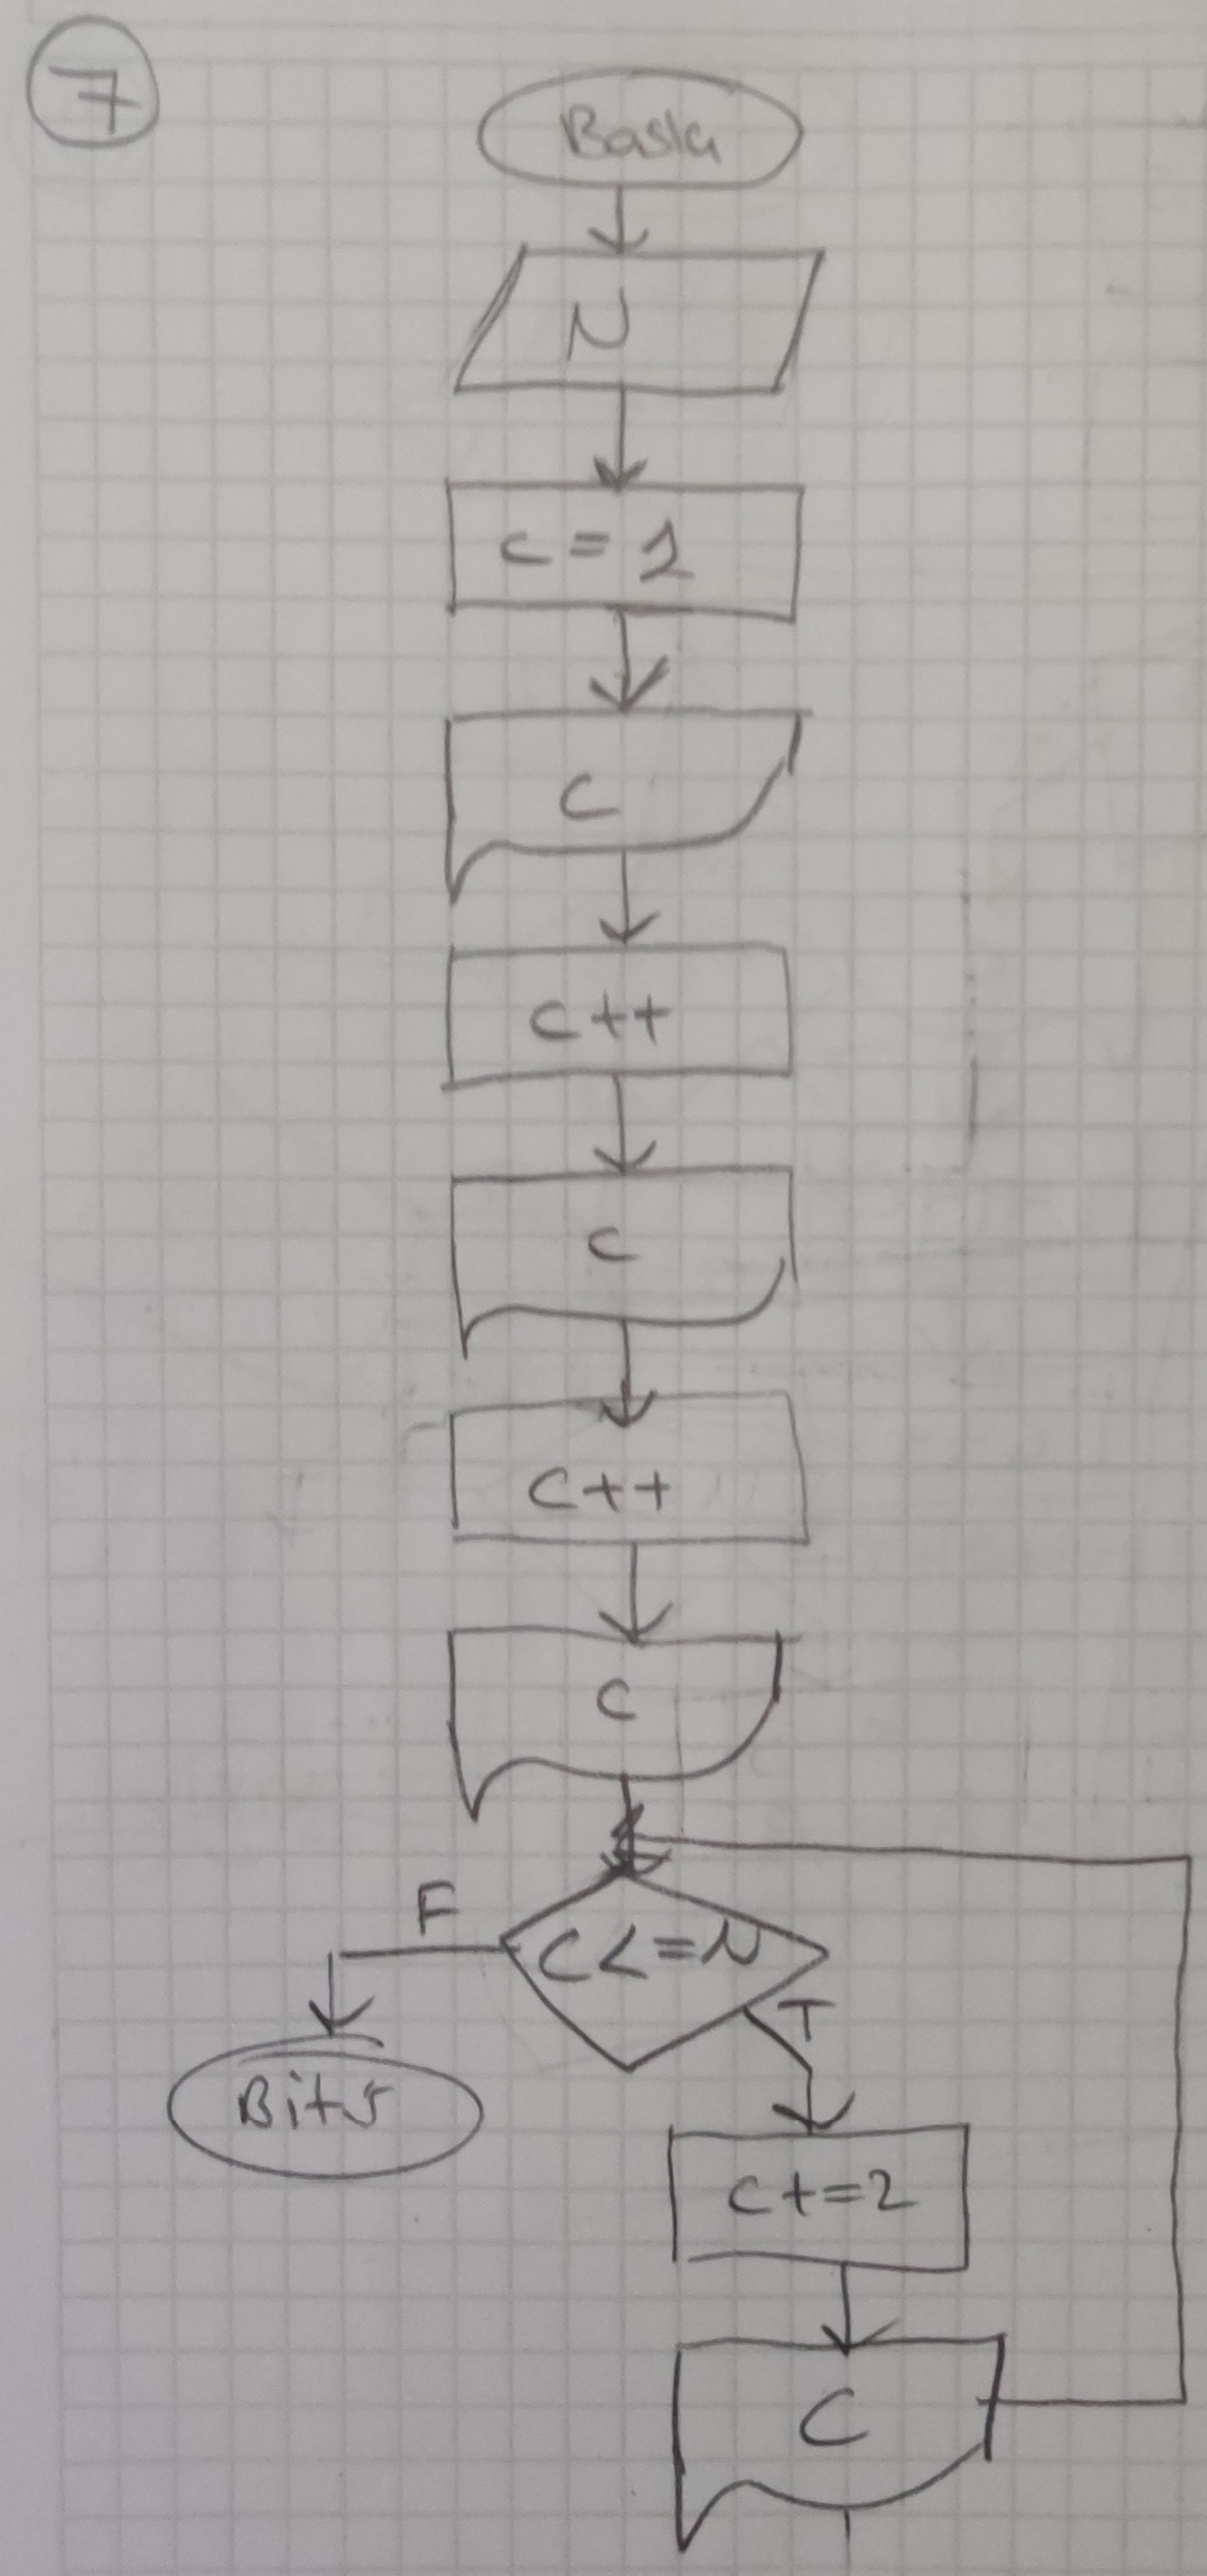 7
Basla
N
c = 1
C
C++
C
C++
C
C<=N
F
T
Bitir
C+=2
C